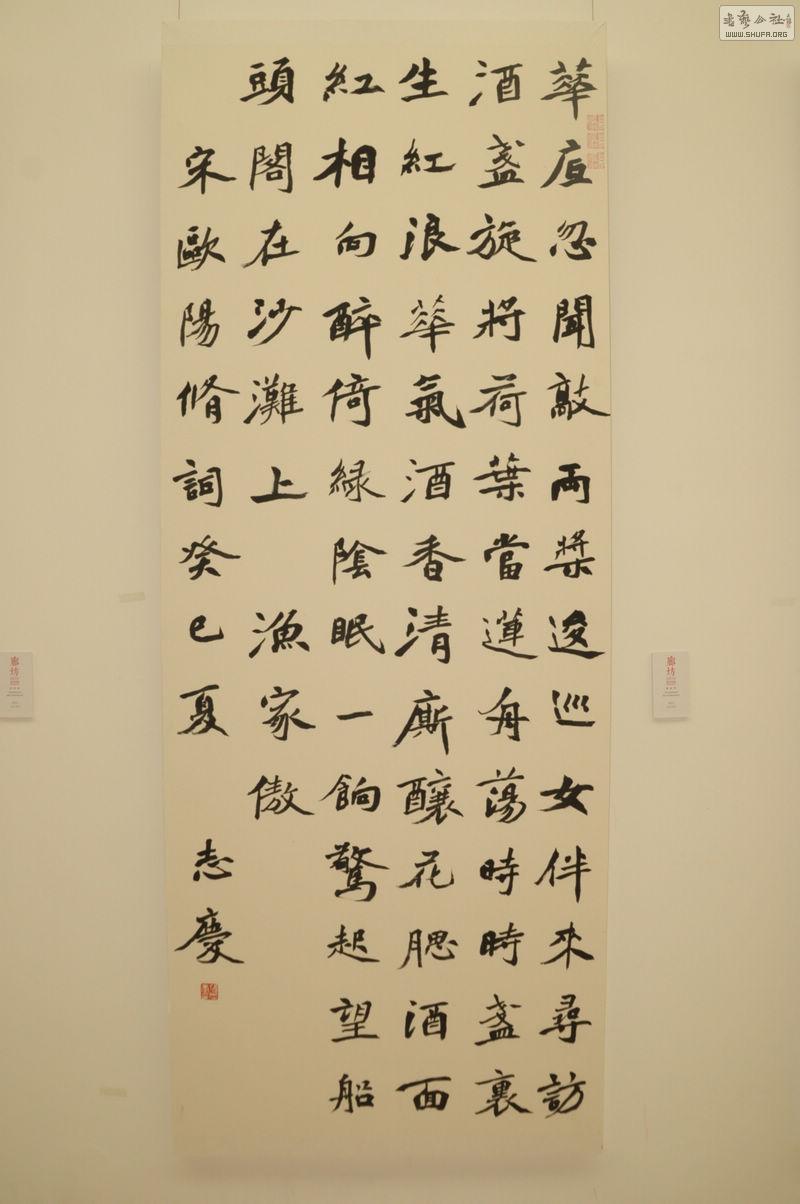 華底忽聞敲兩槳逡巡女伴來尋訪
酒盞旋將荷葉當蓮舟蕩時時盞裏
生紅浪華氣酒香清廝釀花腮酒面
紅相向醉倚緑陰眠一餉驚起望船
頭閣在沙灘上 漁家傲
宋歐陽脩詞癸巳夏 志慶
书艺公社
WWW.SHUFA.ORG
廊坊
廊坊